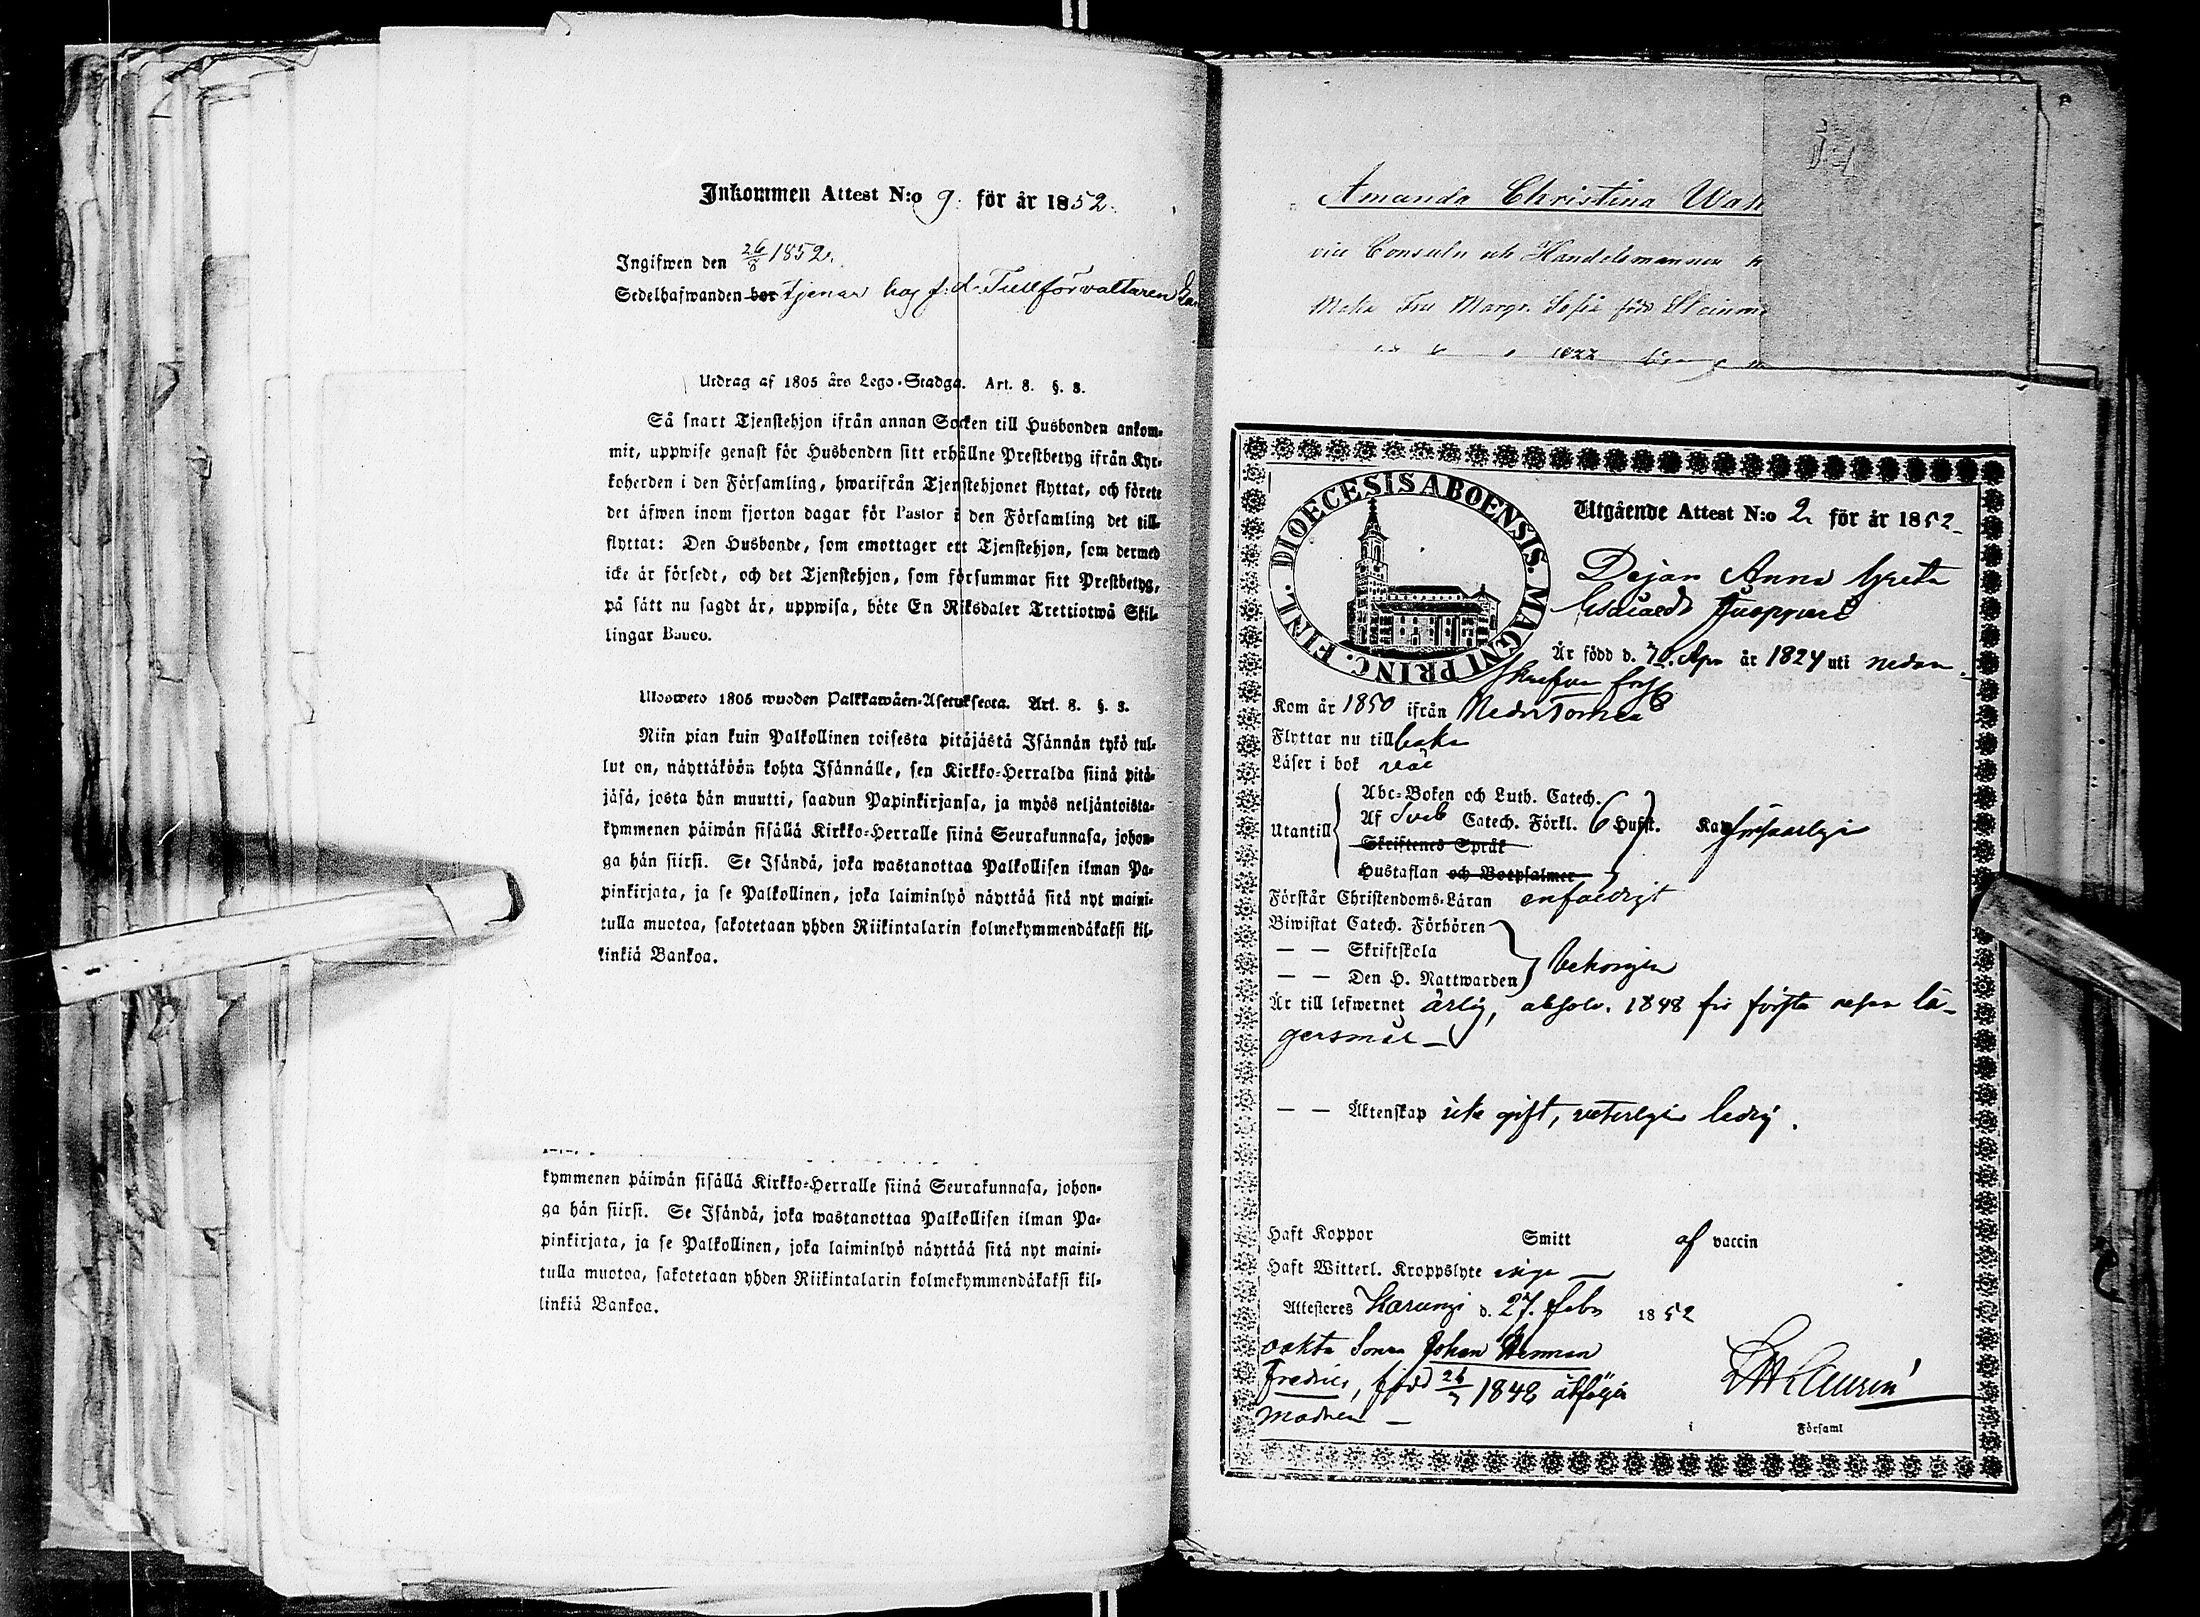 Inkommen Attest N:o 9. för år 1852.
Ingifwen den 26/8 1852.
Sedelhafwanden bor tjenar hos f. d. Tullförvaltaren
Utdrag af 1805 års Lego-Stadga. Art. 8. §. 8.
Så snart Tjenstehjon ifrån annan Socken till Husbonden ankom-
mit, uppwise genast för Husbonden sitt erhållne Prestbetyg ifrån Kyr-
koherden i den Församling, hwarifrån Tjenstehjonet flyttat, och förete
det äfwen inom fjorton dagar för Pastor i den Församling det till-
flyttat: Den Husbonde, som emottager ett Tjenstehjon, som dermed
icke är försedt, och det Tjenstehjon, som försummar sitt Prestbetyg,
på sätt nu sagdt är, uppwisa, böte En Riksdaler Trettiotwå Skil-
lingar Banco.
Ulosweto 1805 wuoden Palkkawäen-Asetuksesta. Art. 8. §. 8.
Niin pian kuin Palkollinen toisesta pitäjästä Isännän tykö tul-
lut on, näyttäköön kohta Isännälle, sen Kirkko-Herralda siinä pitä-
jäsä, josta hän muutti, saadun Papinkirjansa, ja myös neljäntoista-
kymmenen päiwän sisällä Kirkko-Herralle siinä Seurakunnasa, johon-
ga hän siirsi. Se Isändä, joka wastanottaa Palkollisen ilman Pa-
pinkirjata, ja se Palkollinen, joka laiminlyö näyttää sitä nyt maini-
tulla muotoa, sakotetaan yhden Riikintalarin kolmekymmendäkaksi kil-
linkiä Bankoa.
kymmenen päiwän sisällä Kirkko-Herralle siinä Seurakunnasa, johon-
ga hän siirsi. Se Isändä, joka wastanottaa Palkollisen ilman Pa-
pinkirjata, ja se Palkollinen, joka laiminlyö näyttää sitä nyt maini-
tulla muotoa, sakotetaan yhden Riikintalarin kolmekymmendäkaksi kil-
linkiä Bankoa.
Amanda Christina
vice Consuln och Handelsmannen
Maka Fru Margr. Sofia född
1822
DIOECESIS ABOENSIS. MAGNI PRINC. FINL.
Utgående Attest N:o 2 för år 1852
Pigan Anna Greta
Är född d. Apr år 1824 uti nedan
skrefven förs.
Kom år 1850 ifrån Neder Torneå
Flyttar nu till baka
Läser i bok
Abc-Boken och Luth. Catech.
Utantill Af Sveb Catech. Förkl. 6 Hufst. Kan försvarlign
Skriftenes Språk
Hustaflan och Botpsalmer
Förstår Christendoms-Läran enfaldigt
Biwistat Catech. Förhören
— — Skriftskola
— — Den H. Nattwarden behörigen
Är till lefwernet ärlig, absolv. 1848 för första resan lä-
gersmål —
— — Äktenskap icke gift, veterligen ledig.
Haft Koppor Smitt af vaccin
Haft Witterl. Kroppslyte inga —
Attesteres Karungi d. 27. Febr 1852
oäkta Sonen Johan Herman
Fredric, född 26/7 1848 åtföljer
modren —
i Församl